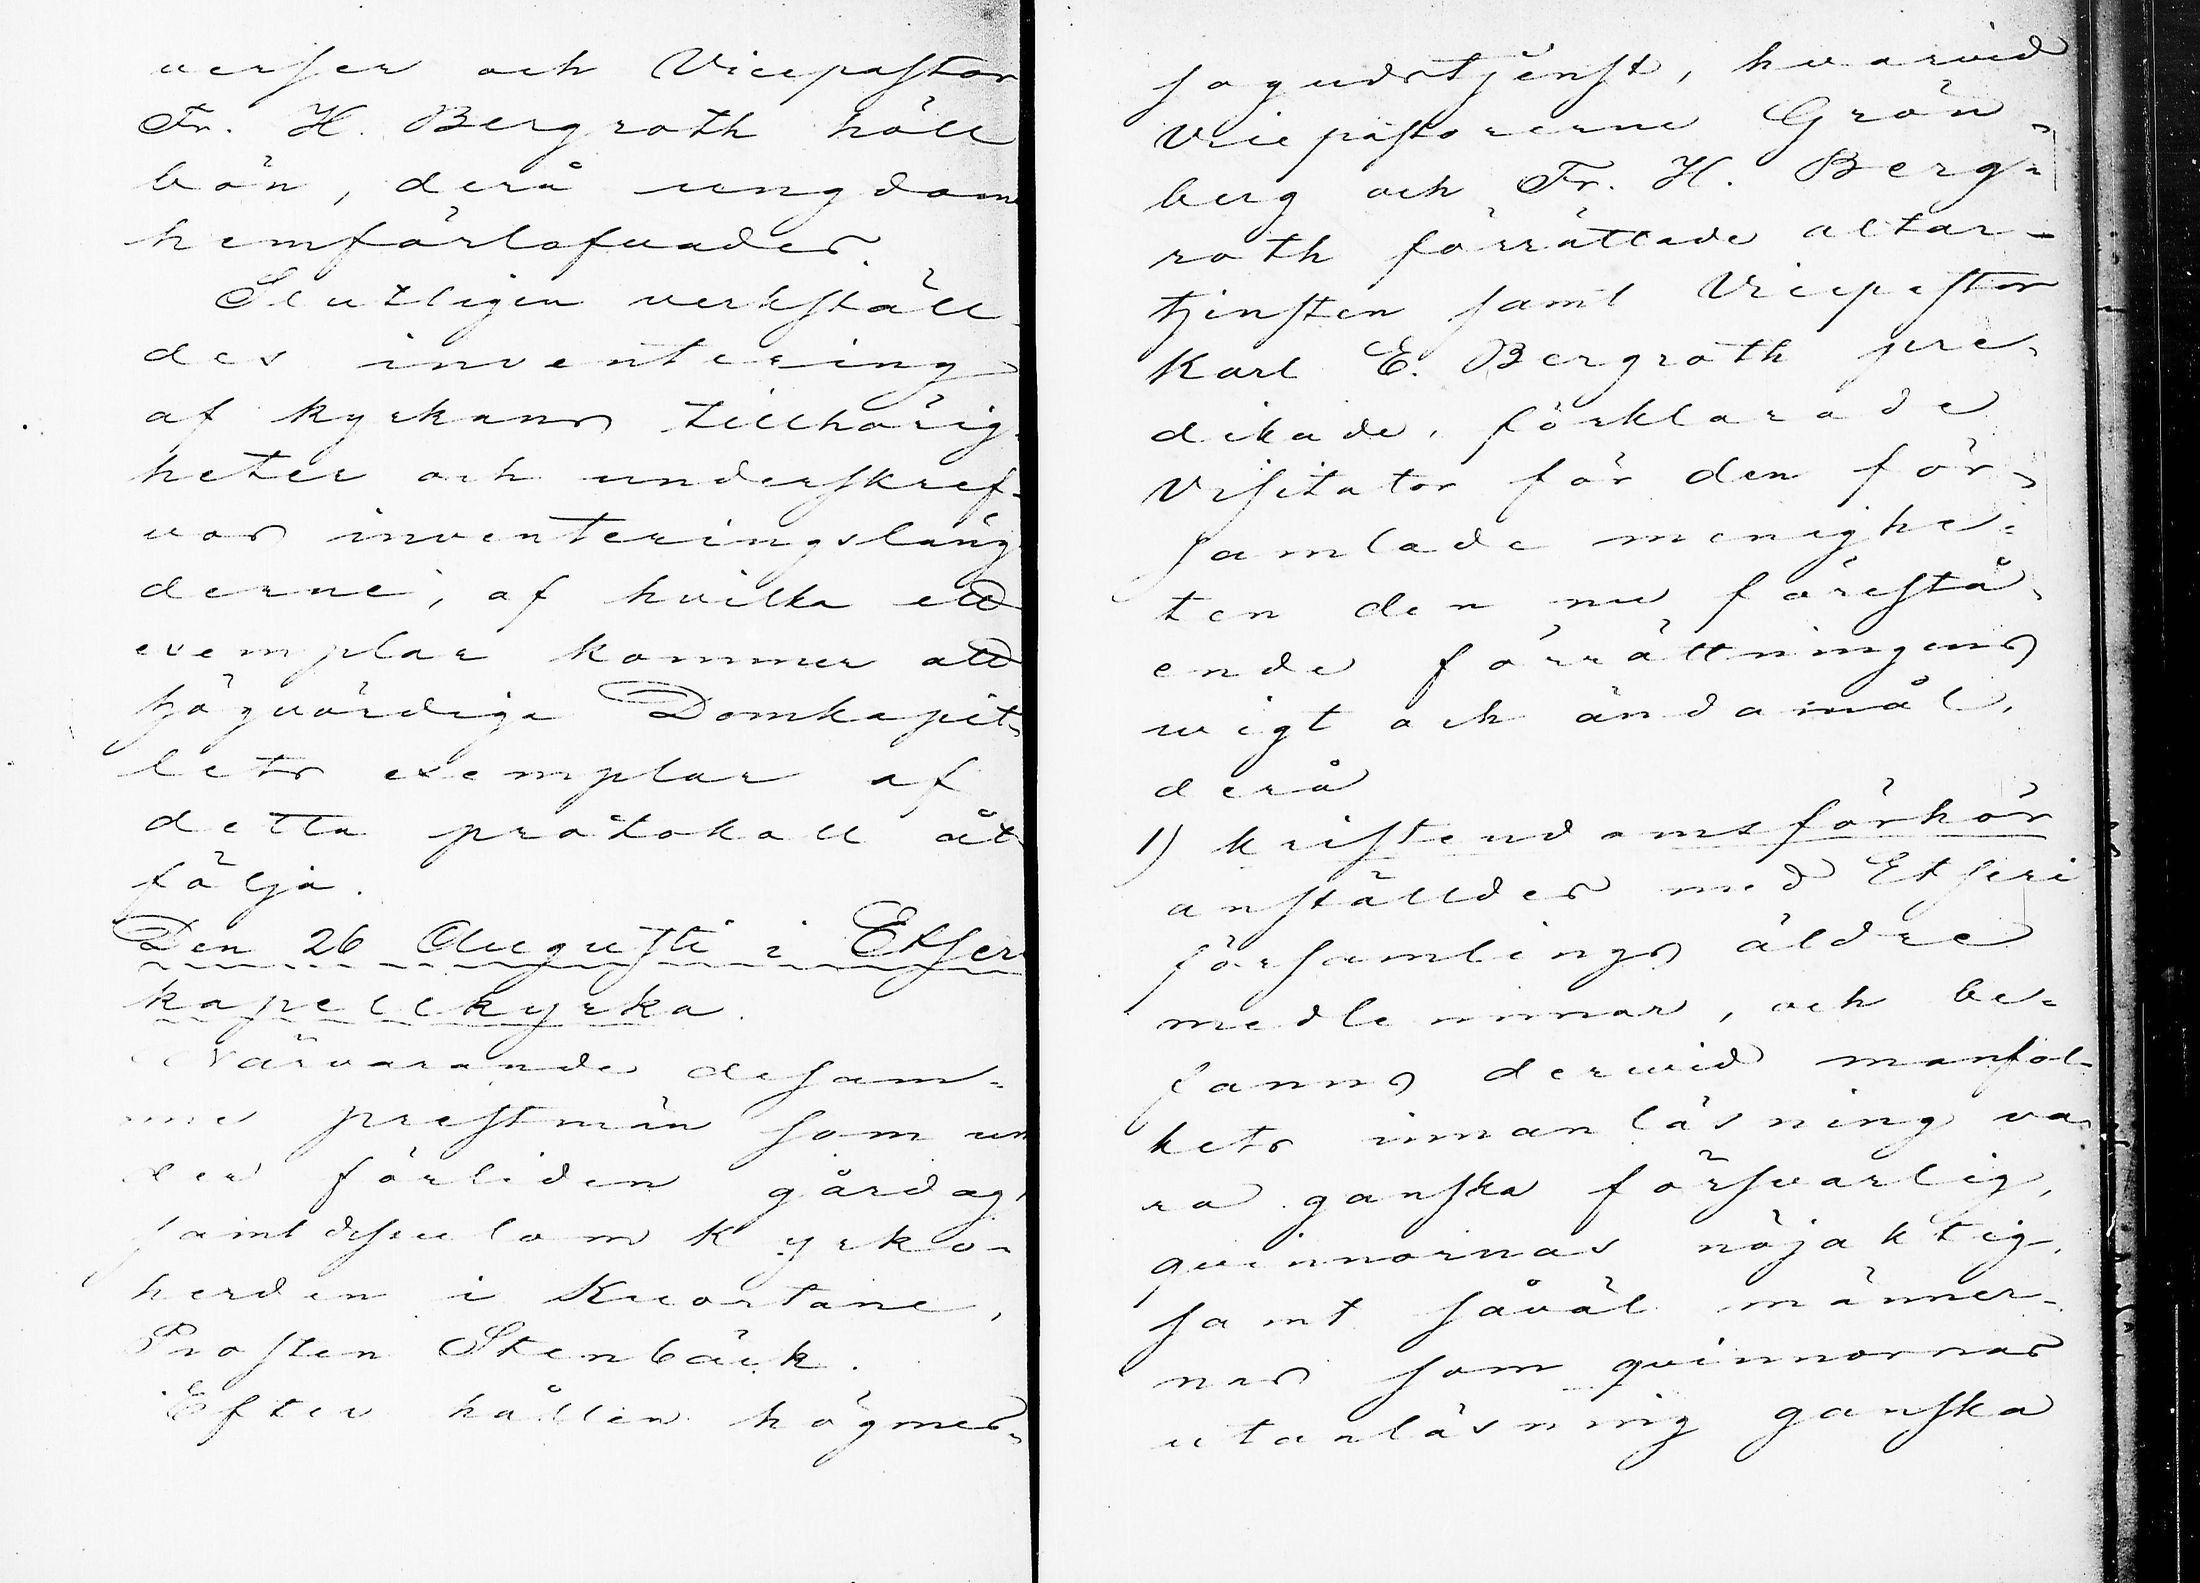 verser och Vicepastor
Fr. H. Bergroth höll
bön, derå ungdom
hemförlofvades.
Slutligen verkställ-
des inventering
af kyrkans tillhörig-
heter och underskref-
vos inventeringsläng
derne, af hvilka ett
exemplar kommer att
högvördiga Domkapit-
lets exemplar af
detta protokoll åt
följa.
Den 26 Augusti i Etseri
kapellkyrka.
Närvarande desam-
me prestmän som un
der förliden gårdag
samt dessutom Kyrko-
herden i Kuortane,
Prosten Stenbäck.
Efter hållen högmes-
sogudstjenst, hvarvid
Vicepastorerne Grön-
berg och Fr. H. Berg-
roth förrättade altar-
tjensten samt Vicepastor
Karl E. Bergroth pre-
dikade, förklarade
Visitator för den för-
samlade menighe-
ten den nu förestå-
ende förrättningens
wigt och ändamål,
derå
1) kristendomsförhör
anställdes med Etseri
församlings äldre
medlemmar, och be-
fanns dervid manfol-
kets innanläsning va-
ra ganska försvarlig,
qvinnornas nöjaktig,
samt såväl männer-
nas som qvinnornas
utanläsning ganska